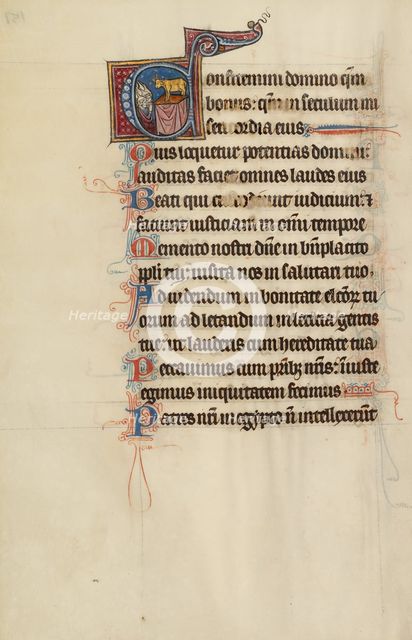 Confitemini domino qm
bonus: qm in seculum mi
sericordia eius
Quis loquetur potentias domini:
auditas faciet omnes laudes eius
Beati qui custodiunt iudicium: &
faciunt iusticiam in omni tempore
Memento nostri dne in bnplacito
ppli tui: uisita nos in salutari tuo.
Ad uidendum in bonitate elcor tu
orum ad letandum in leticia gentis
tue: ut lauderis cum hereditate tua
Peccauimus cum prib nris: iniuste
egimus iniquitatem fecimus
Patres nri in egypto n intellexerunt